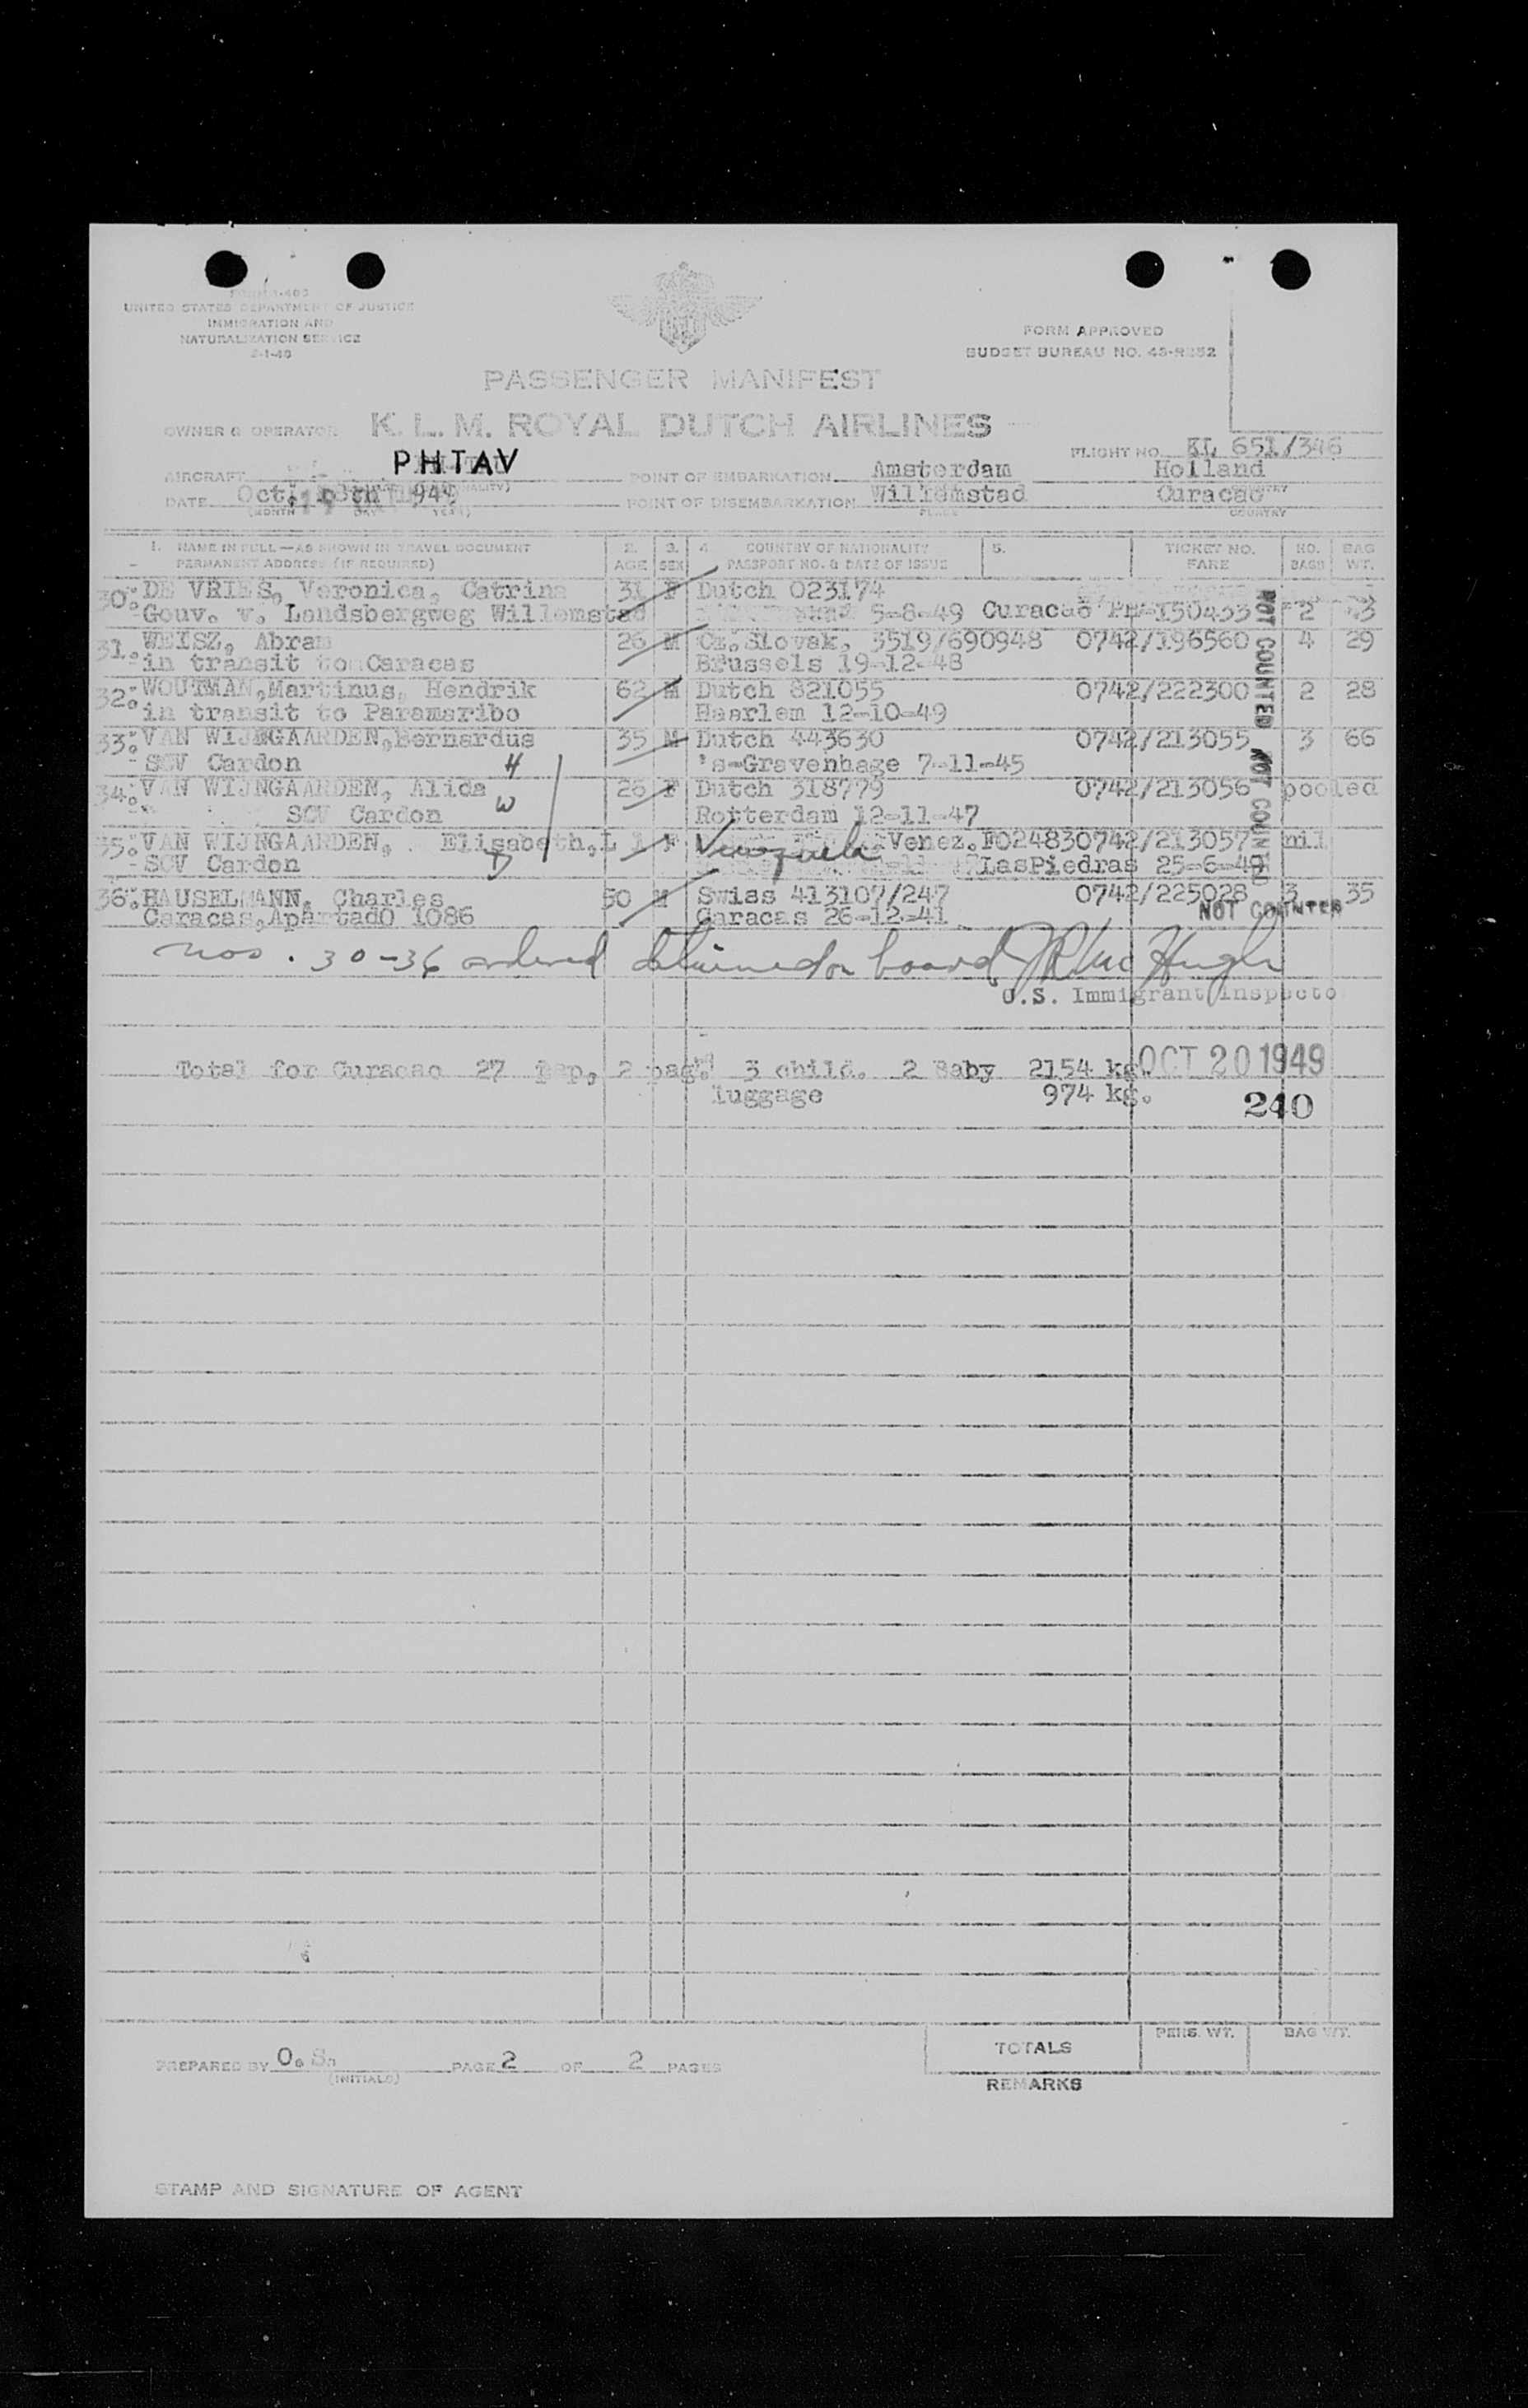 UNITED STATES DEPARTMENT OF JUSTICE
IMMIGRATION AND
NATURALIZATION SERVICE
FORM APPROVED
BUDGET BUREAU NO. 43-R252
PASSENGER MANIFEST
OWNER & OPERATOR K. L. M. ROYAL DUTCH AIRLINES
FLIGHT NO. KL 651/346
AIRCRAFT PHTAV POINT OF EMBARKATION Amsterdam Holland
DATE Oct. 1949 POINT OF DISEMBARKATION Willemstad Curacao
(MONTH DAY YEAR) PLACE COUNTRY
1. NAME IN FULL—AS SHOWN IN TRAVEL DOCUMENT 2. 3. 4. COUNTRY OF NATIONALITY 5. TICKET NO. NO. BAG
PERMANENT ADDRESS (IF REQUIRED) AGE SEX PASSPORT NO. & DATE OF ISSUE FARE BAGS WT.
30. DE VRIES, Veronica, Catrina 31 F Dutch 023174
Gouv. v. Landsbergweg Willemstad 5-8-49 Curacao 150433 2
31. WEISZ, Abram 26 M Cz.Slovak, 3519/690948 0742/196560 4 29
in transit to Caracas Brussels 19-12-48
32. WOUTMAN,Martinus, Hendrik 62 M Dutch 821055 0742/222300 2 28
in transit to Paramaribo Haarlem 12-10-49
33. VAN WIJNGAARDEN,Bernardus 35 M Dutch 443630 0742/213055 3 66
SCV Cardon H 's-Gravenhage 7-11-45
34. VAN WIJNGAARDEN, Alida 26 F Dutch 318779 0742/213056 pooled
SCV Cardon W Rotterdam 12-11-47
35. VAN WIJNGAARDEN, Elisabeth,L 1 F Venezuela Venez.F02483 0742/213057 nil
SCV Cardon D LasPiedras 25-6-49
36. HAUSELMANN, Charles 50 M Swiss 413107/247 0742/225028 3 35
Caracas,Apartado 1086 Caracas 26-12-41
NOT COUNTED NOT COUNTED
NOT COUNTED
nos. 30-36 ordered detained on board JR McHugh
U.S. Immigrant Inspecto
Total for Curacao 27 pap, 2 pag. 3 child. 2 Baby 2154 kg. OCT 20 1949
luggage 974 kg.
240
PREPARED BY O. S. PAGE 2 OF 2 PAGES
(INITIALS)
TOTALS PERS. WT. BAG WT.
REMARKS
STAMP AND SIGNATURE OF AGENT